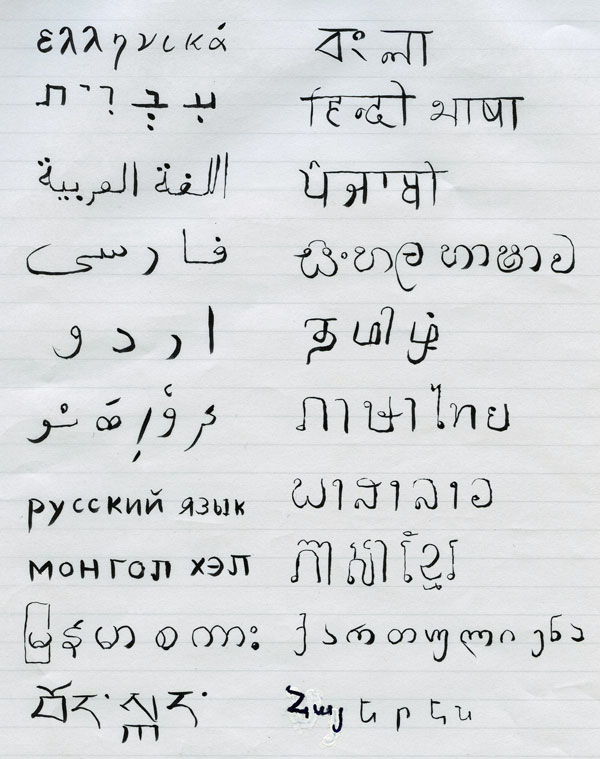 ελληνικά
עִבְּרִית
اللغة العربية
فارسی
اردو
русский язык
монгол хэл
မြန်မာစကား
བོད་སྐད་
বাংলা
हिन्दी भाषा
ਪੰਜਾਬੀ
සිංහල භාෂාව
தமிழ்
ภาษาไทย
ພາສາລາວ
ភាសាខ្មែរ
ქართული ენა
Հայերեն